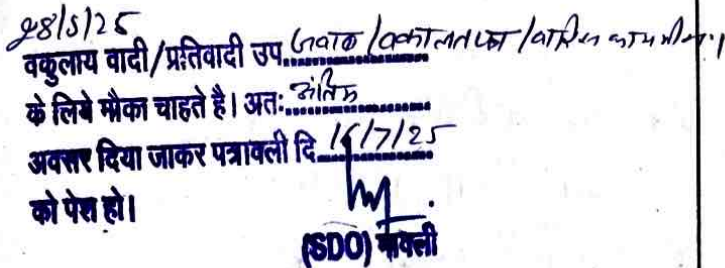 28/5/25
वकुलाय वादी/प्रतिवादी उप. जवाब/वकालतपत्र/वारिस कायमी
के लिये मौका चाहते है। अतः अंतिम
अवसर दिया जाकर पत्रावली दि 16/7/25
को पेश हो।
(SDO) मावली